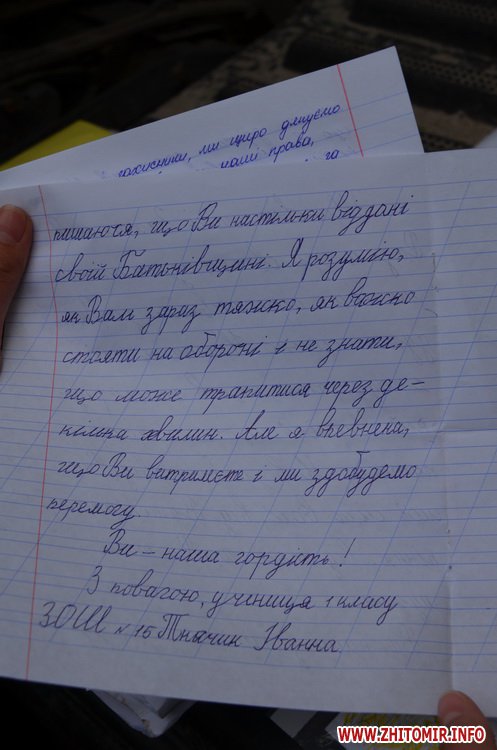 захисники, ми щиро дякуємо
наші права,
та
пишаюся, що Ви настільки віддані
своїй Батьківщині. Я розумію,
як Вам зараз тяжко, як важко
стояти на обороні і не знати,
що може трапитися через де-
кілька хвилин. Але я впевнена,
що Ви витримєте і ми здобудемо
перемогу.
Ви – наша гордість!
З повагою, учениця 1 класу
ЗОШ №15 Ткачик Іванна
WWW.ZHITOMIR.INFO